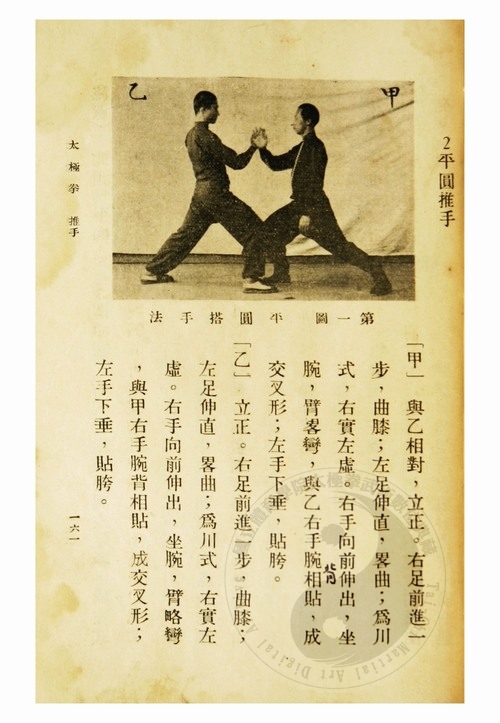 2平圓推手
甲
乙
第一圖 平圓搭手法
「甲」 與乙相對，立正。右足前進一
步，曲膝；左足伸直，畧曲；爲川
式，右實左虛。右手向前伸出，坐
腕，臂畧彎，與乙右手腕相貼，成
背
交叉形；左手下垂，貼胯。
「乙」 立正。右足前進一步，曲膝；
左足伸直，畧曲；爲川式，右實左
虛。右手向前伸出，坐腕，臂略彎
，與甲右手腕背相貼，成交叉形；
左手下垂，貼胯。
太極拳 推手
一六一
Martial Art Digital